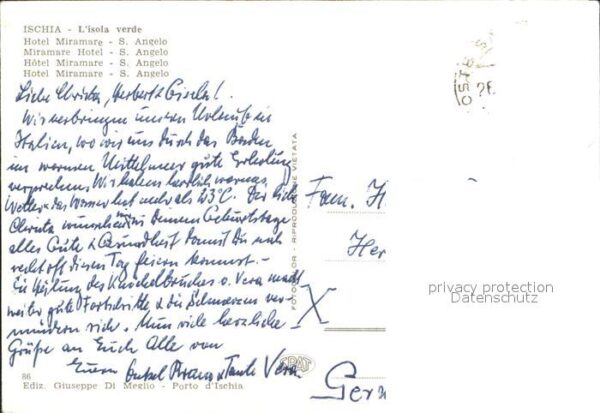 ISCHIA - L'isola verde
Hotel Miramare - S. Angelo
Miramare Hotel - S. Angelo
Hôtel Miramare - S. Angelo
Hotel Miramare - S. Angelo
Liebe Christa, Herbert & Gisela!
Wir verbringen unseren Urlaub in
Italien, wo wir uns durch das Baden
im warmen Mittelmeer gute Erholung
versprechen. Wir haben herrlich warmes
Wetter & das Wasser hat mehr als 23°C. Der liebe
Christa wünschen wir zu Deinem Geburtstage
alles Gute & Gesundheit damit Du noch
recht oft diesen Tag feiern kannst. -
Die Heilung des Knöchelbruches v. Vera macht
weiter gute Fortschritte & die Schmerzen ver-
mindern sich. Nun viele herzliche
Grüße an Euch Alle von
Euern Onkel & Tante Vera
86
Ediz. Giuseppe Di Meglio - Porto d'Ischia
RIPRODUZIONE VIETATA
Fam. H
Her
X
Ger
privacy protection
Datenschutz